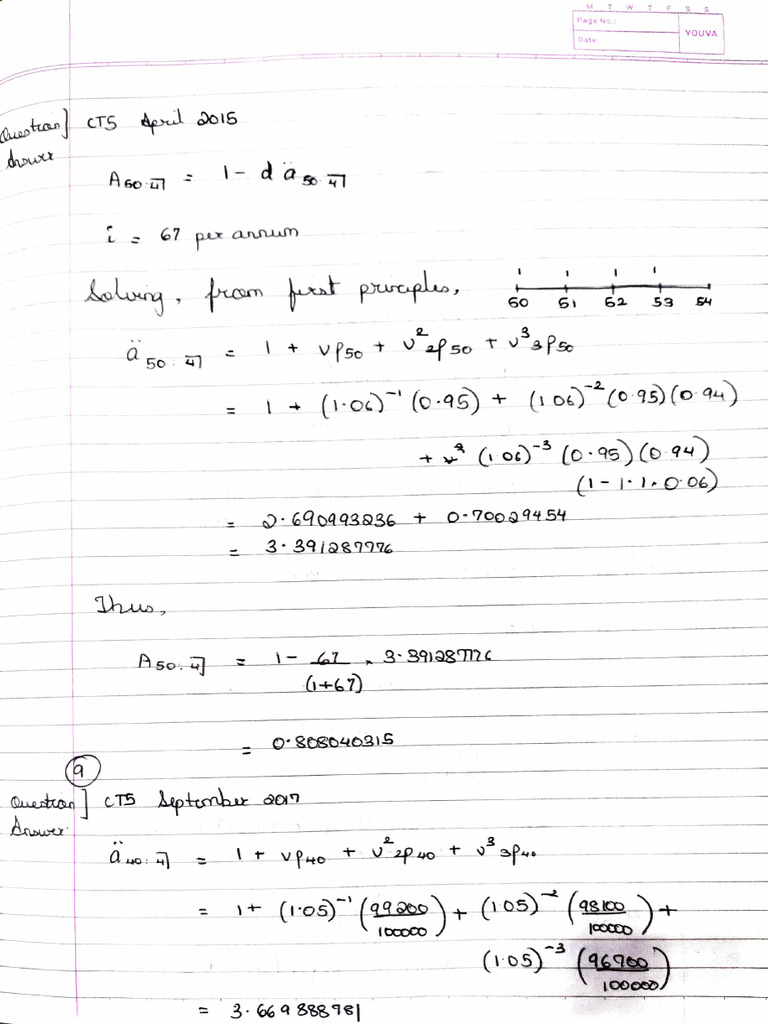 M T W T F S S
Page No.:
Date:
YOUVA
Question] CT5 April 2015
Answer
A50:4̅| = 1 - d ä50:4̅|
i = 6% per annum
Solving, from first principles,
50 51 52 53 54
ä50:4̅| = 1 + vp50 + v² 2p50 + v³ 3p50
= 1 + (1.06)⁻¹ (0.95) + (1.06)⁻² (0.95)(0.94)
+ (1.06)⁻³ (0.95)(0.94)
(1-1.1×0.06)
= 2.690993236 + 0.70029454
= 3.391287776
Thus,
A50:4̅| = 1 - 6% × 3.391287776
(1+6%)
= 0.808040315
9
Question] CT5 September 2017
Answer
ä40:4̅| = 1 + vp40 + v² 2p40 + v³ 3p40
= 1 + (1.05)⁻¹ (99200/100000) + (1.05)⁻² (98100/100000) +
(1.05)⁻³ (96700/100000)
= 3.669888981